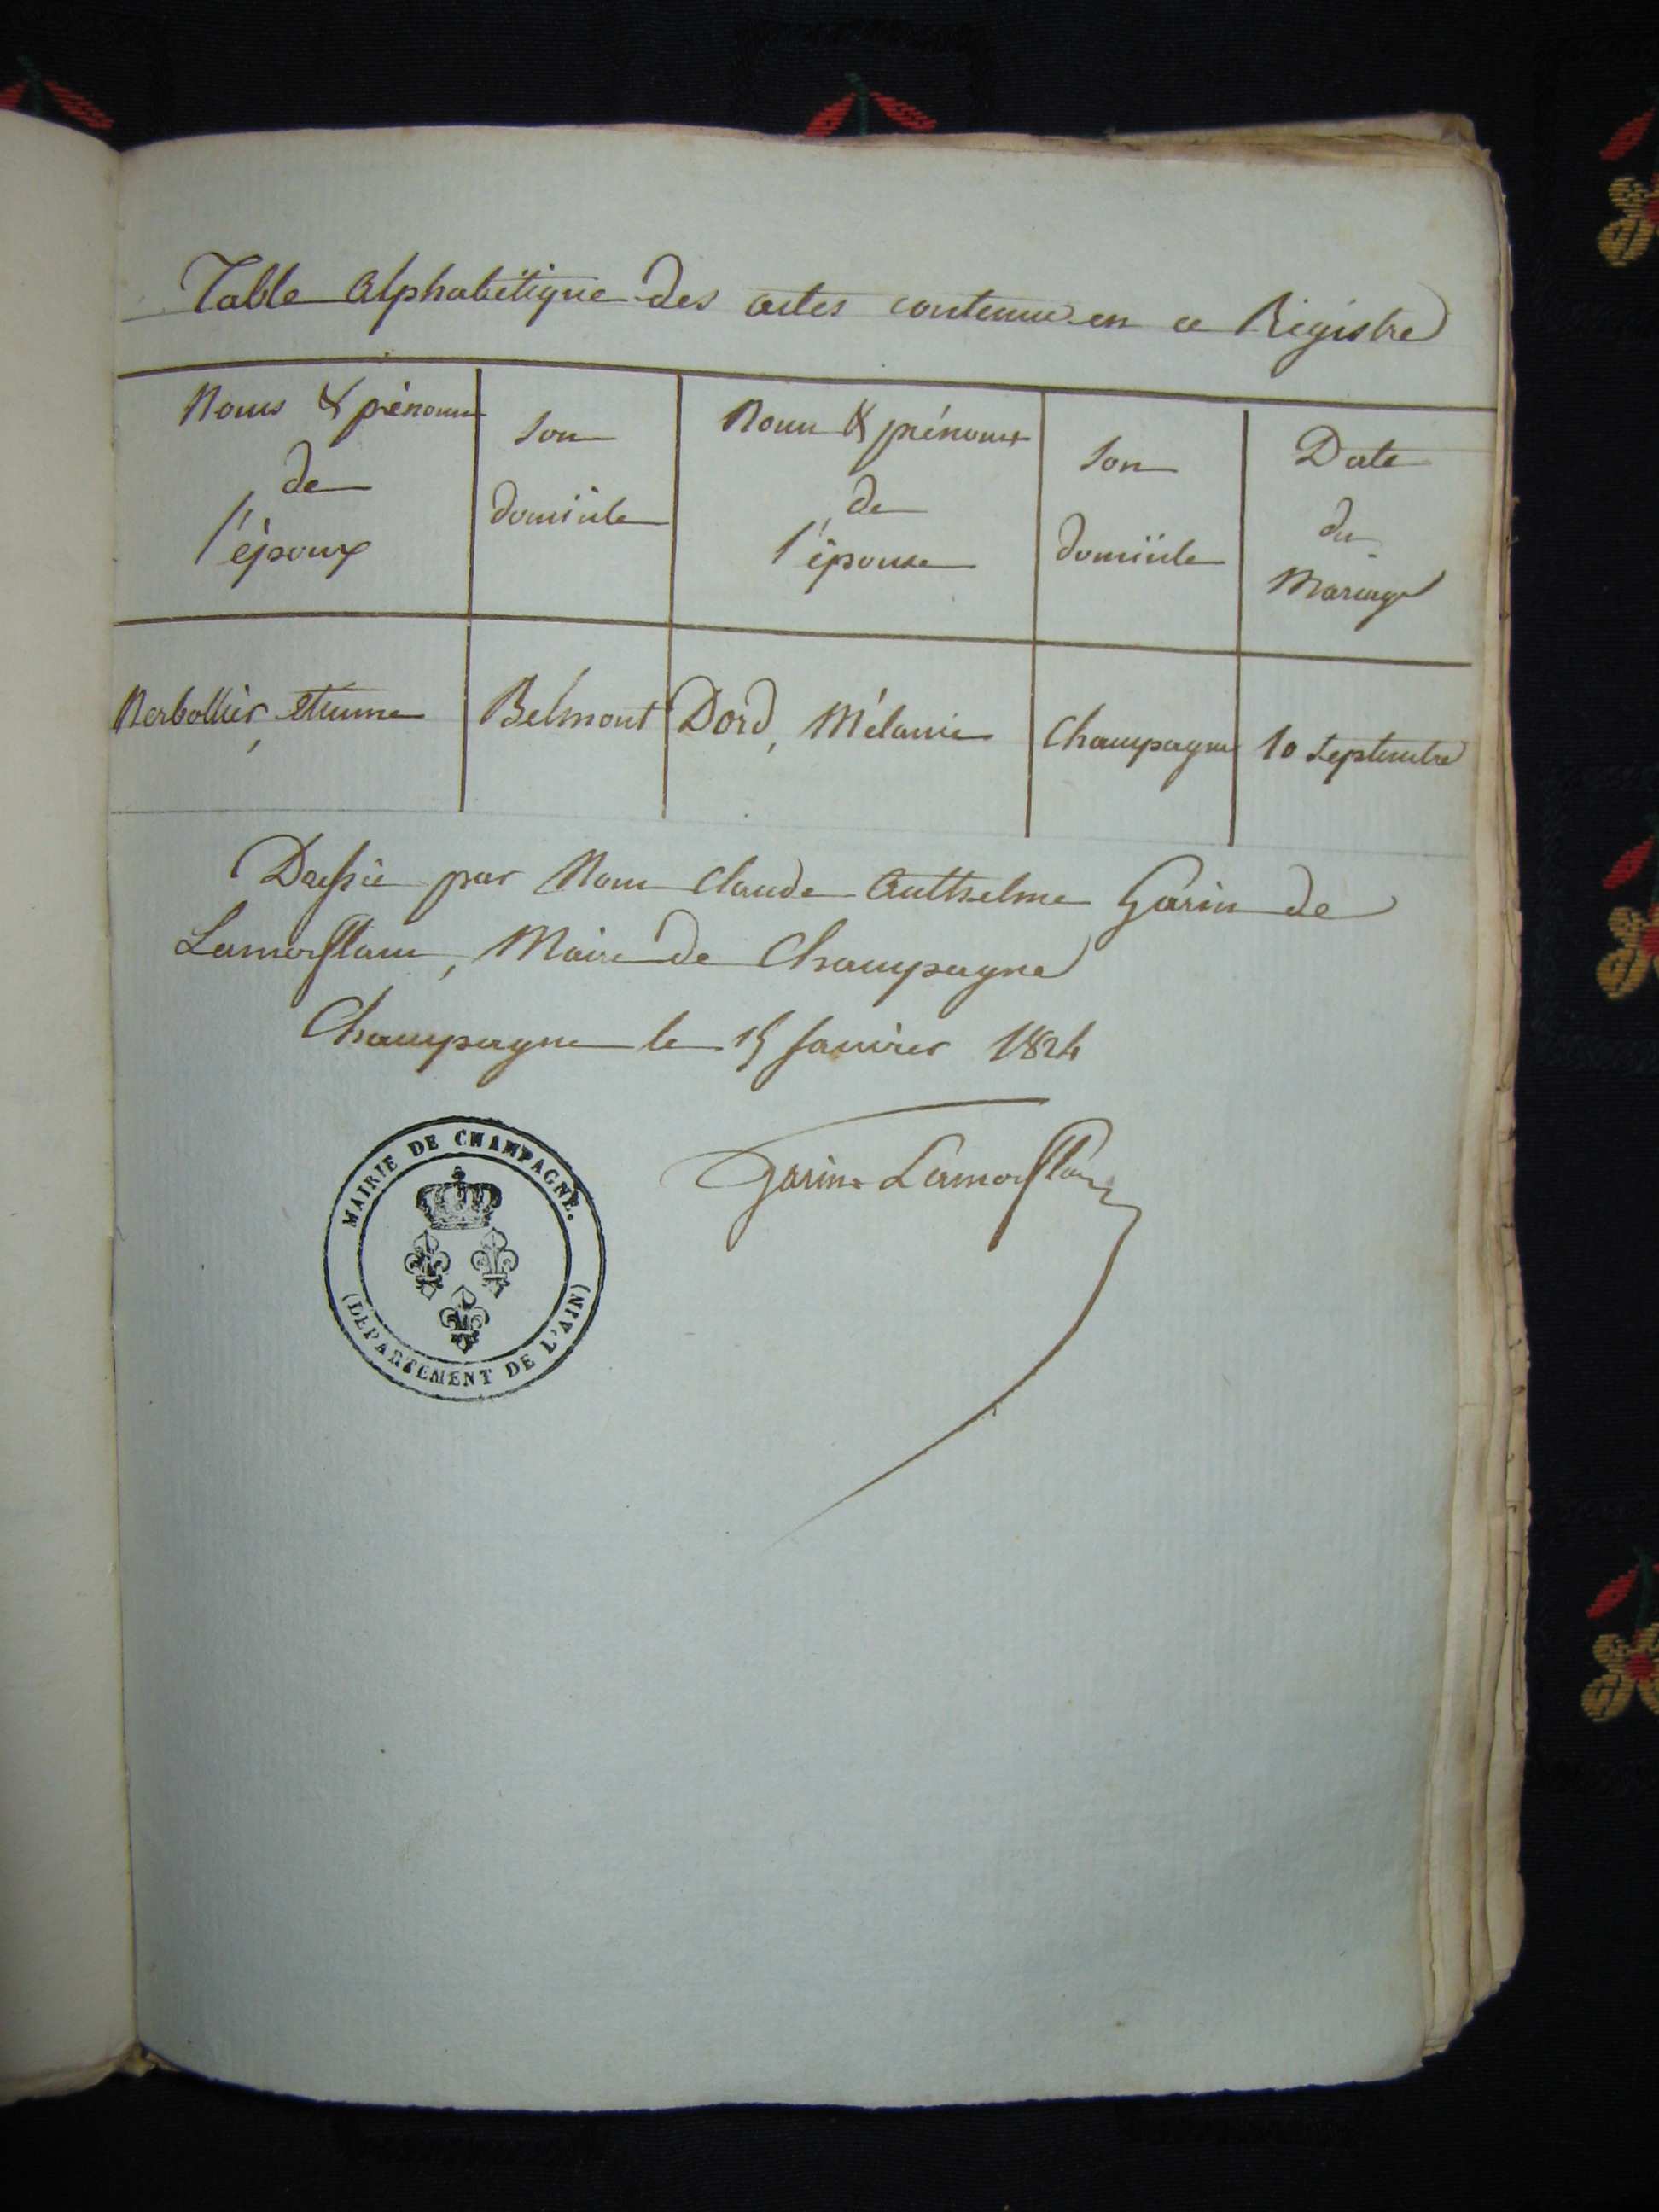 Table Alphabétique des actes contenus en ce Régistre
Noms & prénoms
de
l'époux
Son
domicile
Noms & prénoms
de
l'épouse
Son
domicile
Date
du
Mariage
Nerbollier, étienne
Belmont
Dord, Mélanie
Champagne
10 Septembre
Dressée par Nous Claude Anthelme Garin de
Lamorflanc, Maire de Champagne
Champagne le 15 Janvier 1824
Garin Lamorflanc
MAIRIE DE CHAMPAGNE.
(DÉPARTEMENT DE L'AIN)